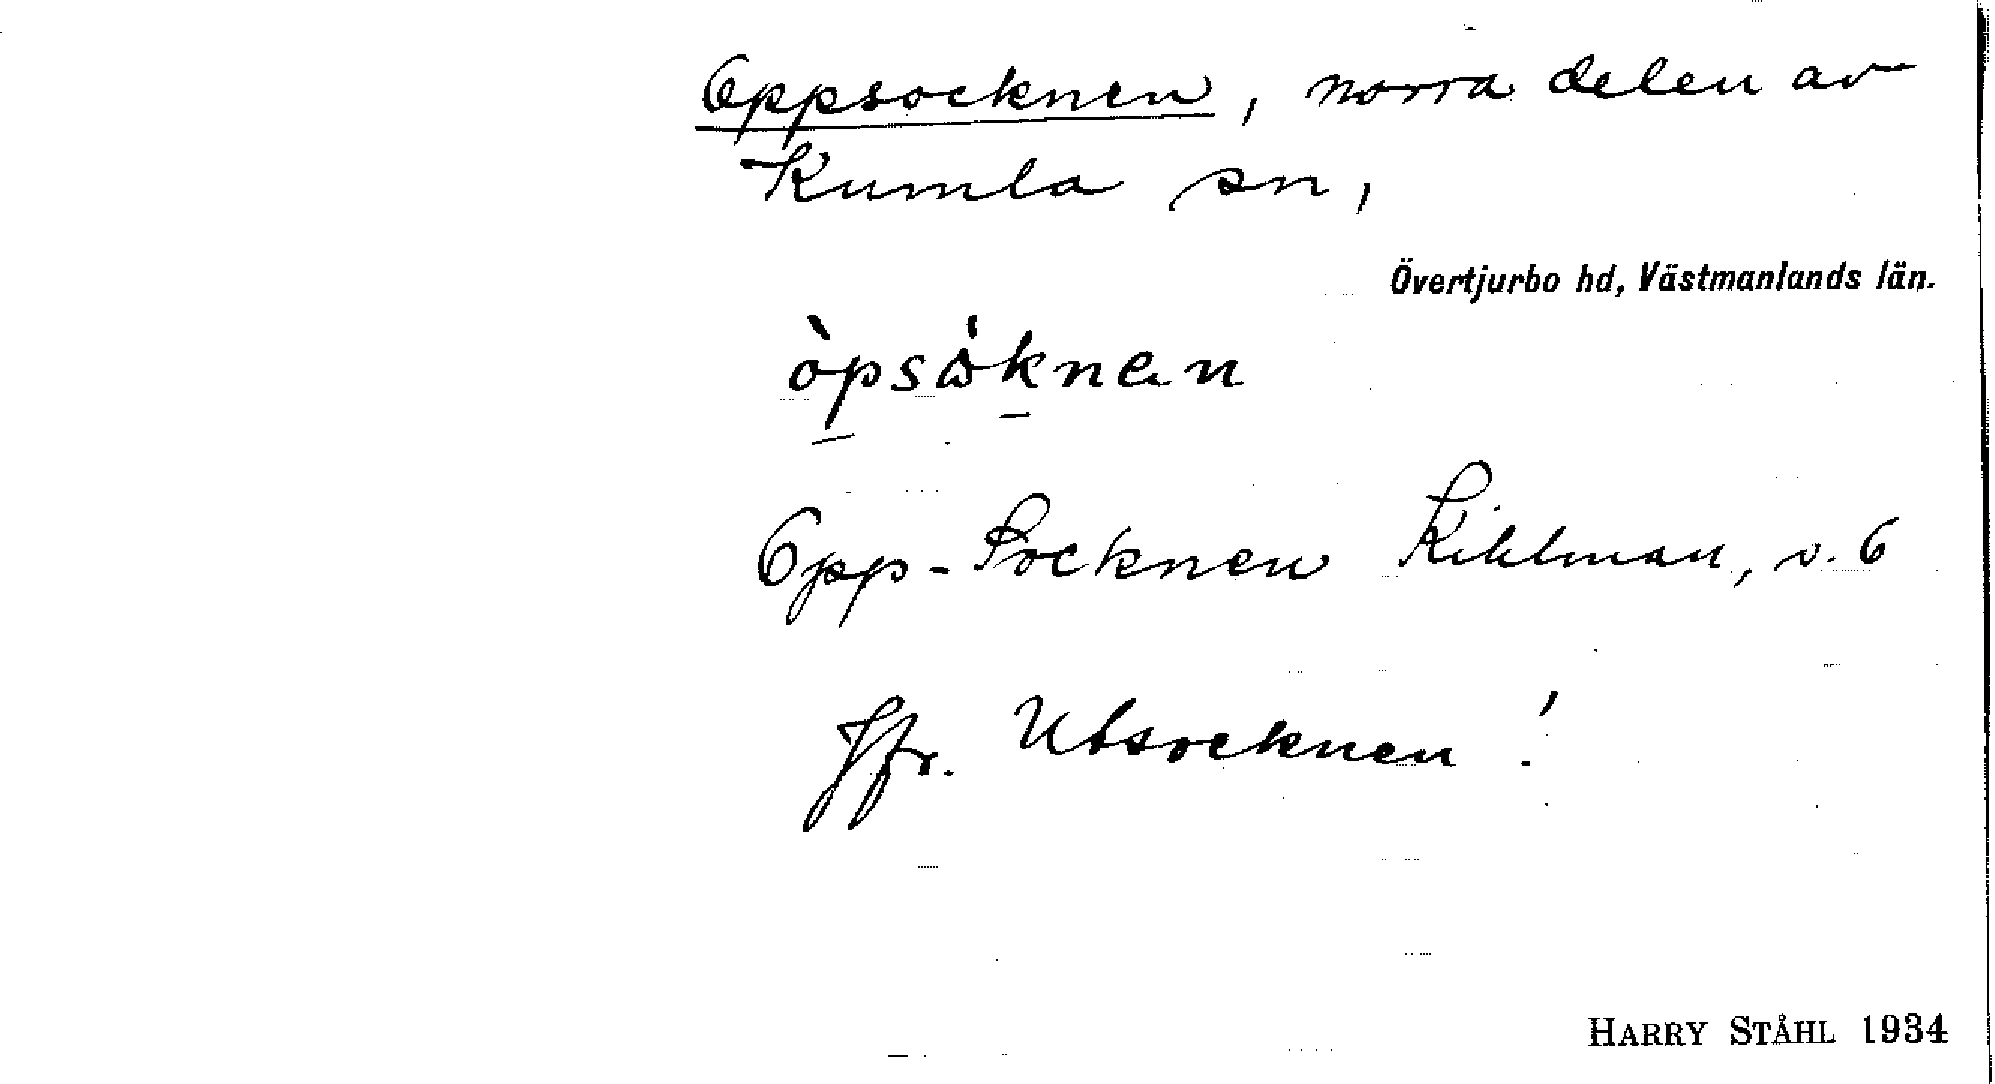 Oppsocknen, norra delen av
Kumla sn,
Övertjurbo hd, Västmanlands län.
òpsåknen
Opp-Socknen Kihlman, s. 6
Jfr. Ubsocknen!
HARRY STÅHL 1934